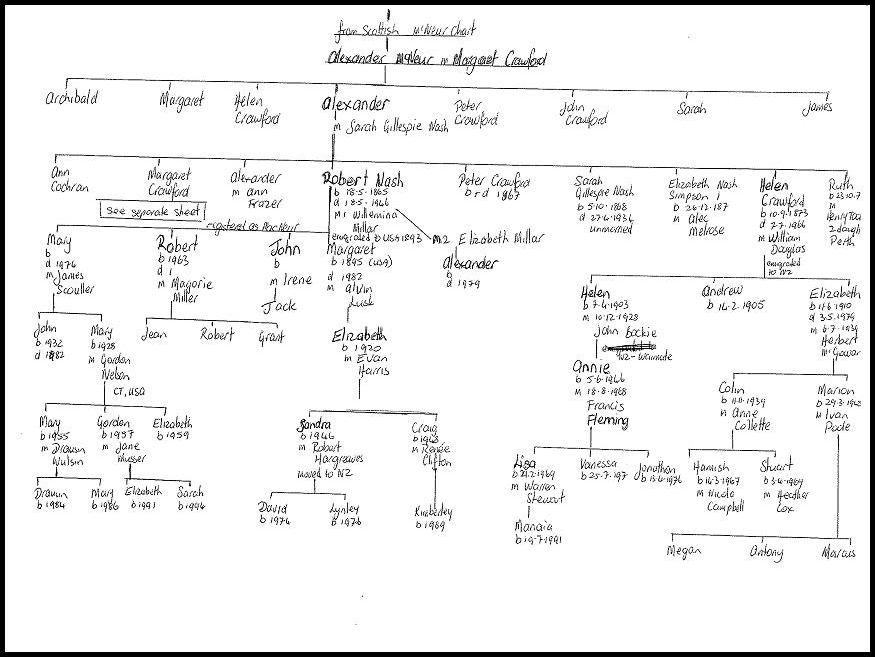 from Scottish McNeur chart
Alexander McNeur m Margaret Crawford
Archibald
Margaret
Helen
Crawford
Alexander
m Sarah Gillespie Nash
Peter
Crawford
John
Crawford
Sarah
James
Ann
Cochran
Margaret
Crawford
Alexander
m Ann
Frazer
Robert Nash
b 18.5.1865
d 18.5.1946
m1 Willemina
Millar
emigrated to USA 1893
m2 Elizabeth Millar
Alexander
d 1979
Peter Crawford
b & d 1867
Sarah
Gillespie Nash
b 5.10.1868
d 27.6.1936
unmarried
Elizabeth Nash
Simpson
b 26.12.187
m Alec
Melrose
Helen
Crawford
b 10.9.1873
d 7.7.1966
m William
Douglas
emigrated
to NZ
Ruth
b 23.10.7
m
Henry Tod
2 daugh
Perth
see separate sheet
registered as MacNeur
Mary
b
d 1976
m James
Scouller
Robert
b 1963
d
m Marjorie
Miller
John
b
m Irene
Jack
Margaret
b 1895 (USA)
d 1982
m Alvin
Lusk
John
b 1932
d 1982
Mary
b 1928
m Gordon
Nelson
CT, USA
Jean
Robert
Grant
Elizabeth
b 1920
m Evan
Harris
Mary
b 1955
m Drausin
Wulsin
Gordon
b 1957
m Jane
Musser
Elizabeth
b 1959
Drausin
b 1984
Mary
b 1986
Elizabeth
b 1991
Sarah
b 1994
Sandra
b 1946
m Robert
Hargreaves
moved to NZ
Craig
m Renee
Clifton
David
b 1974
Lynley
b 1976
Kimberley
b 1989
Helen
b 7.4.1903
m 10.12.1928
John Bockie
NZ - Waimate
Annie
b 5.6.1946
m 18.8.1968
Francis
Fleming
Andrew
b 14.2.1905
Elizabeth
b 11.6.1910
d 3.5.1979
m 6.7.1939
Herbert
McGowan
Lisa
b 21.2.1969
m Warren
Stewart
Manaia
b 19.7.1991
Vanessa
b 25.7.197
Jonathon
b 13.4.1976
Colin
b 11.11.1939
m Anne
Collette
Marion
b 29.3.1942
m Ivan
Poole
Hamish
b 14.3.1967
m Nicola
Campbell
Stuart
b 3.4.1969
m Heather
Cox
Megan
Antony
Marcus